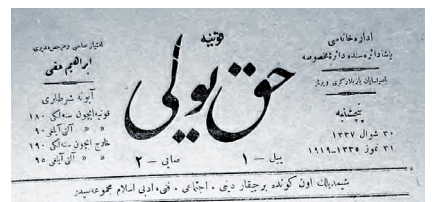 قونیه
حق یولی
اداره خانه‌سی
پاشا دائره‌سنده دائرۀ مخصوصه
پنجشنبه
٣٠ شوال ١٣٣٧
٣١ تموز ١٣٣٥-١٩١٩
امتیاز صاحبی و مرخص مدیری
ابراهیم حقی
آبونه شرطلری
قونیه ایچون سنه‌لکی ١٨٠
» » آلتی آیلغی ٩٠
خارج ایچون سنه‌لکی ١٩٠
» » آلتی آیلغی ٩٥
ییل - ١ صایی - ٢
شیمدیلك اون کونده بر چیقار دینی، اجتماعی، فنی، ادبی اسلام مجموعه‌سیدر